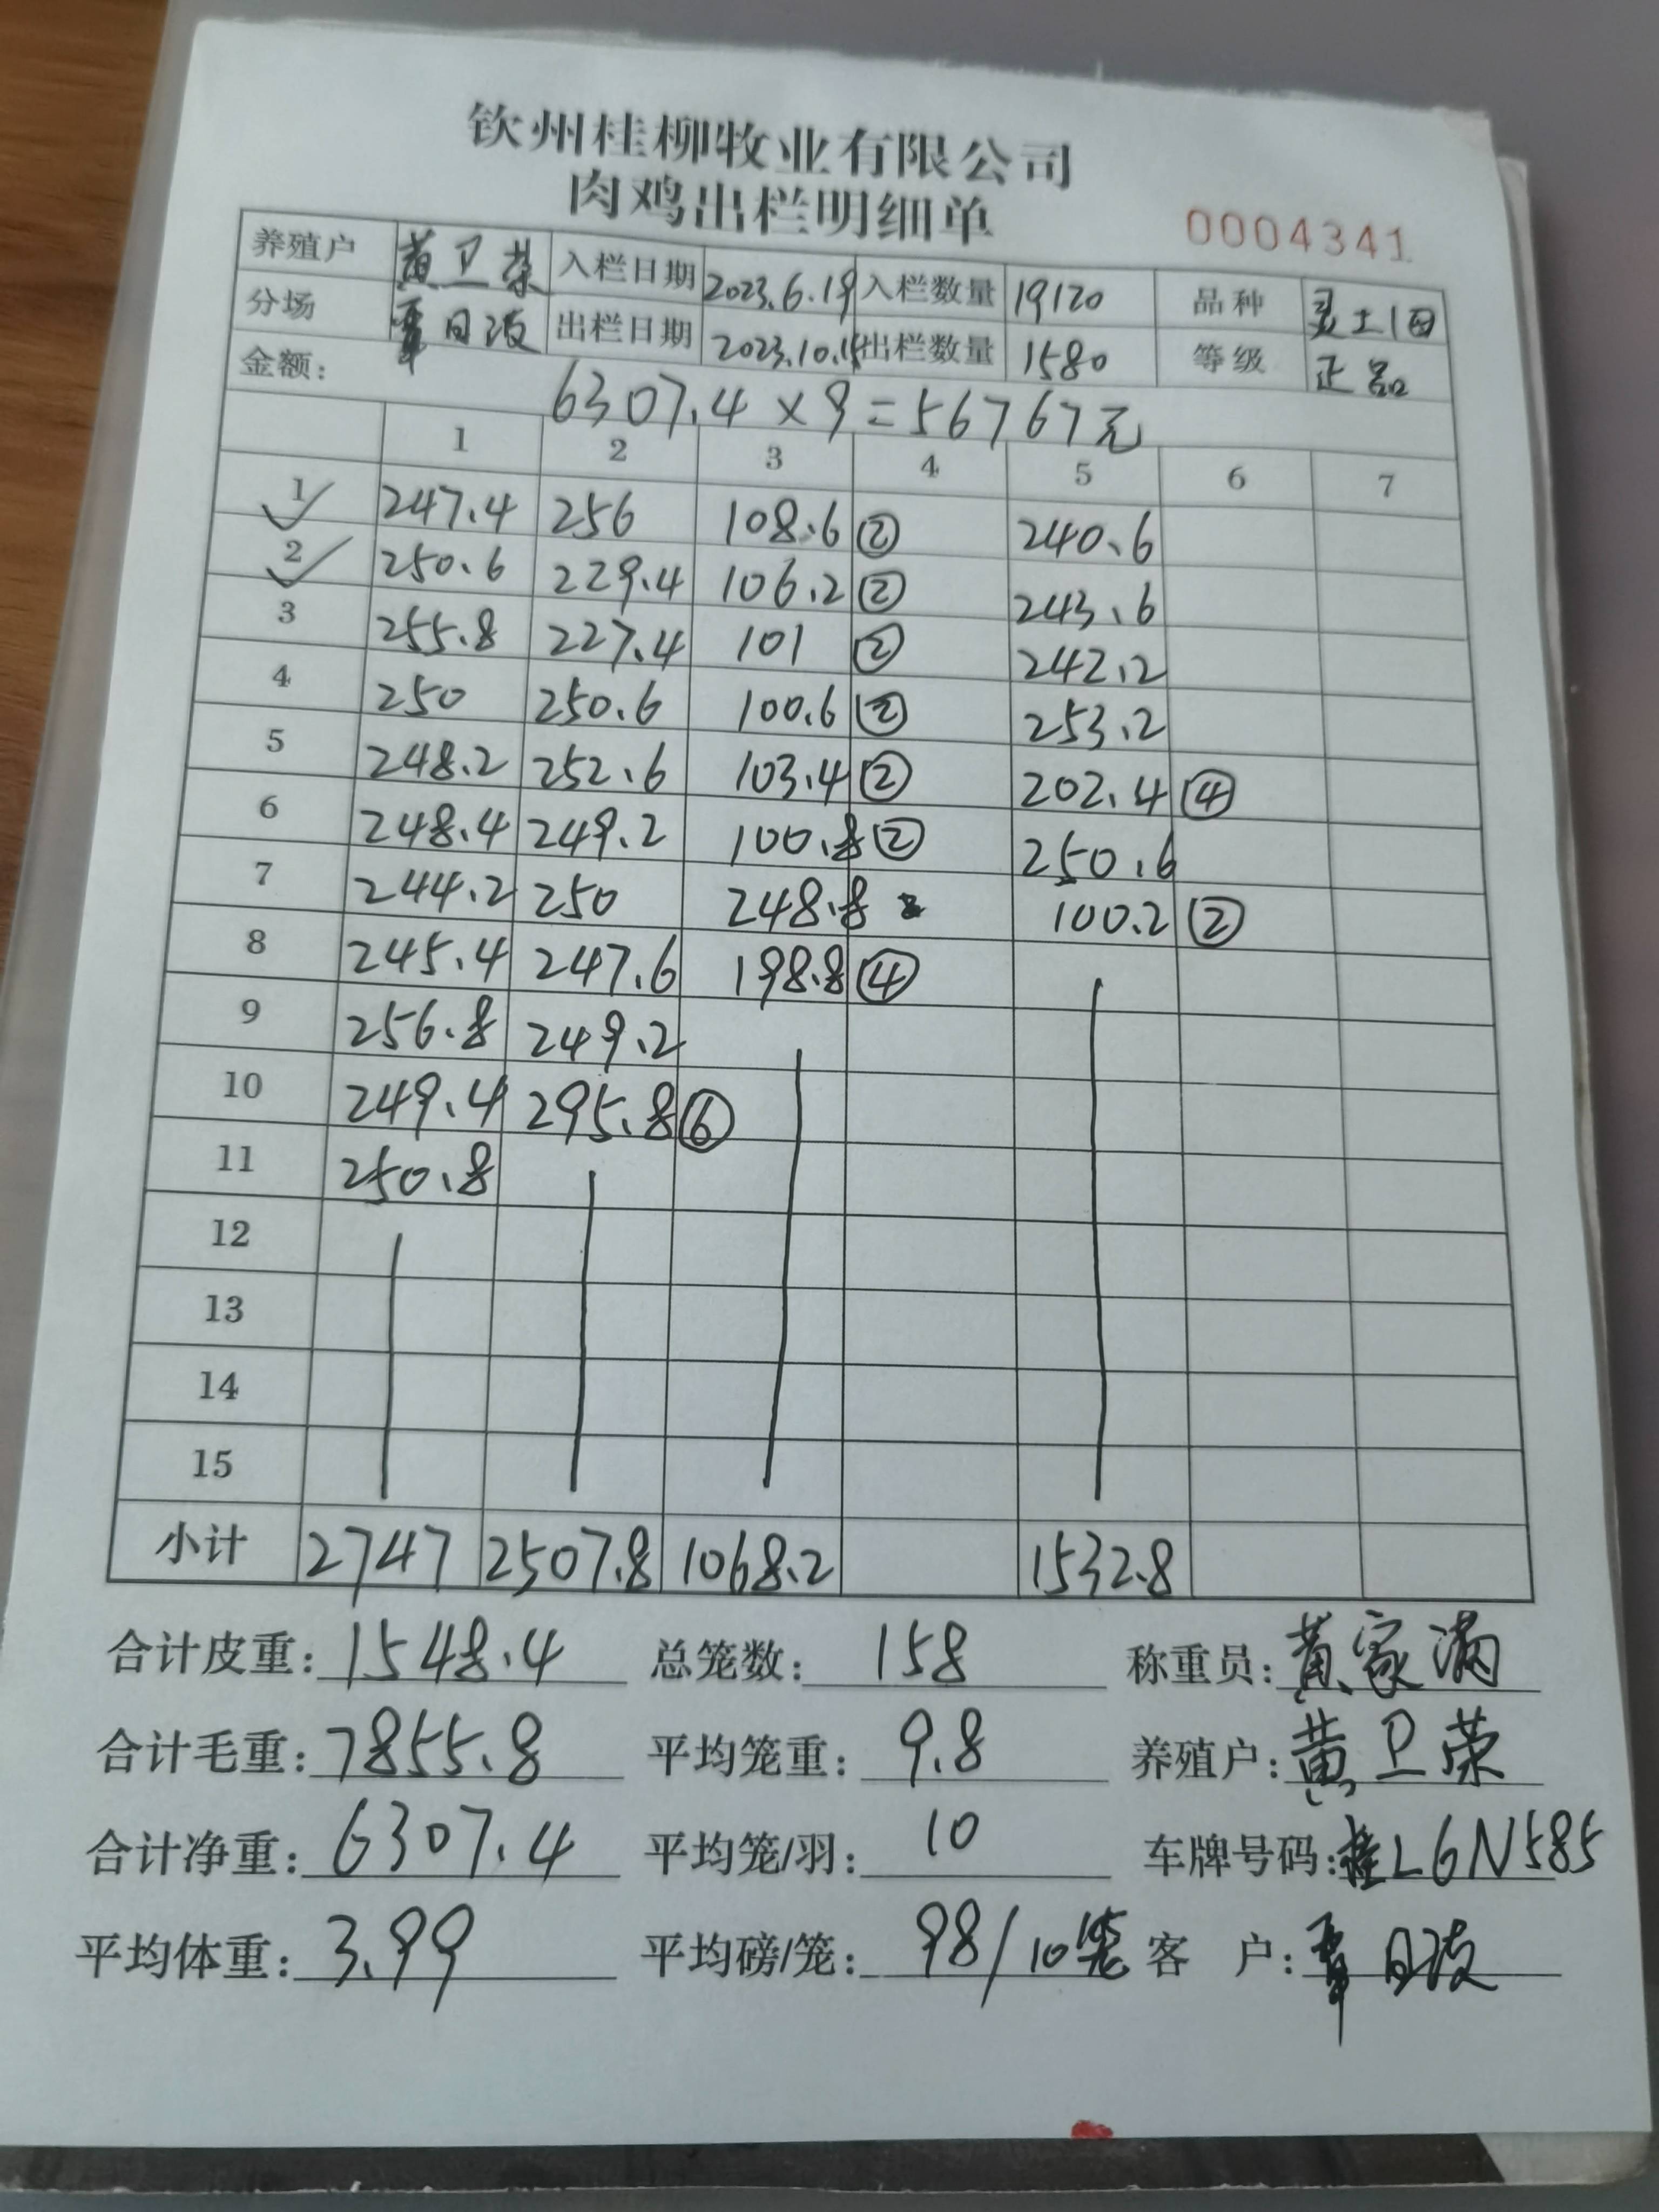 钦州桂柳牧业有限公司
肉鸡出栏明细单
0004341
养殖户 黄卫荣 入栏日期 2023.6.19 入栏数量 19120 品种 灵土1母
分场 覃日波 出栏日期 2023.10.15 出栏数量 1580 等级 正品
金额: 6307.4×9=56767元
1 2 3 4 5 6 7
1 247.4 256 108.6 ② 240.6
2 250.6 229.4 106.2 ② 243.6
3 255.8 227.4 101 ② 242.2
4 250 250.6 100.6 ② 253.2
5 248.2 252.6 103.4 ② 202.4 ④
6 248.4 249.2 100.8 ② 250.6
7 244.2 250 248.8 100.2 ②
8 245.4 247.6 198.8 ④
9 256.8 249.2
10 249.4 295.8 ⑥
11 250.8
12
13
14
15
小计 2747 2507.8 1068.2 1532.8
合计皮重: 1548.4 总笼数: 158 称重员: 黄家满
合计毛重: 7855.8 平均笼重: 9.8 养殖户: 黄卫荣
合计净重: 6307.4 平均笼/羽: 10 车牌号码: 桂L6N585
平均体重: 3.99 平均磅/笼: 98/10笼 客 户: 覃日波